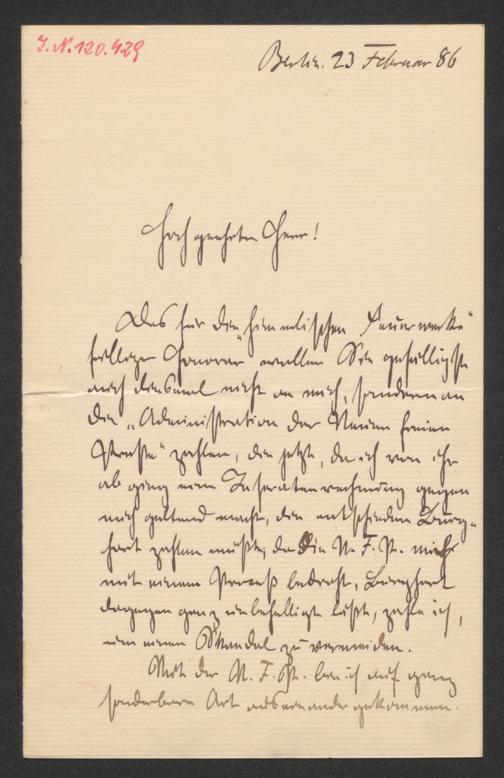 I. N. 120.429
Berlin. 23 Februar 86
Hochgeehrter Herr!
Das für die „himmlischen Feuerwerke“
fällige Honorar wollen Sie gefälligst
auch diesmal nicht an mich, sondern an
die „Administration der Neuen freien
Presse“ zahlen, die jetzt, da ich von ihr
abging eine Inseratenrechnung gegen
mich geltend macht, die entschieden Burg-
hart zahlen müßte; da die N. F. P. mich
mit einem Proceß bedroht, Burghart
dagegen ganz unbehelligt läßt, zahle ich,
um einen Skandal zu vermeiden.
Mit der N. F. P. bin ich auf ganz
sonderbare Art auseinander gekommen.